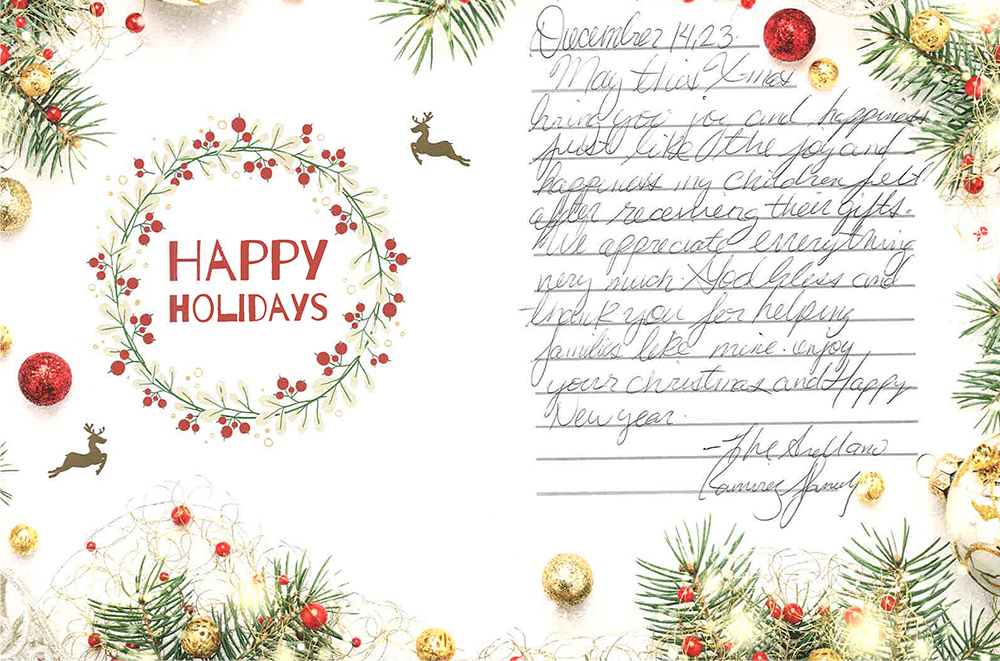 HAPPY
HOLIDAYS
December 14, 23.
May this X-mas
bring you joy and happiness
just like the joy and
happiness my children felt
after receiving their gifts.
We appreciate everything
very much. God bless and
thank you for helping
families like mine. enjoy
your christmas and Happy
New year.
-The Arellano
Ramirez Family